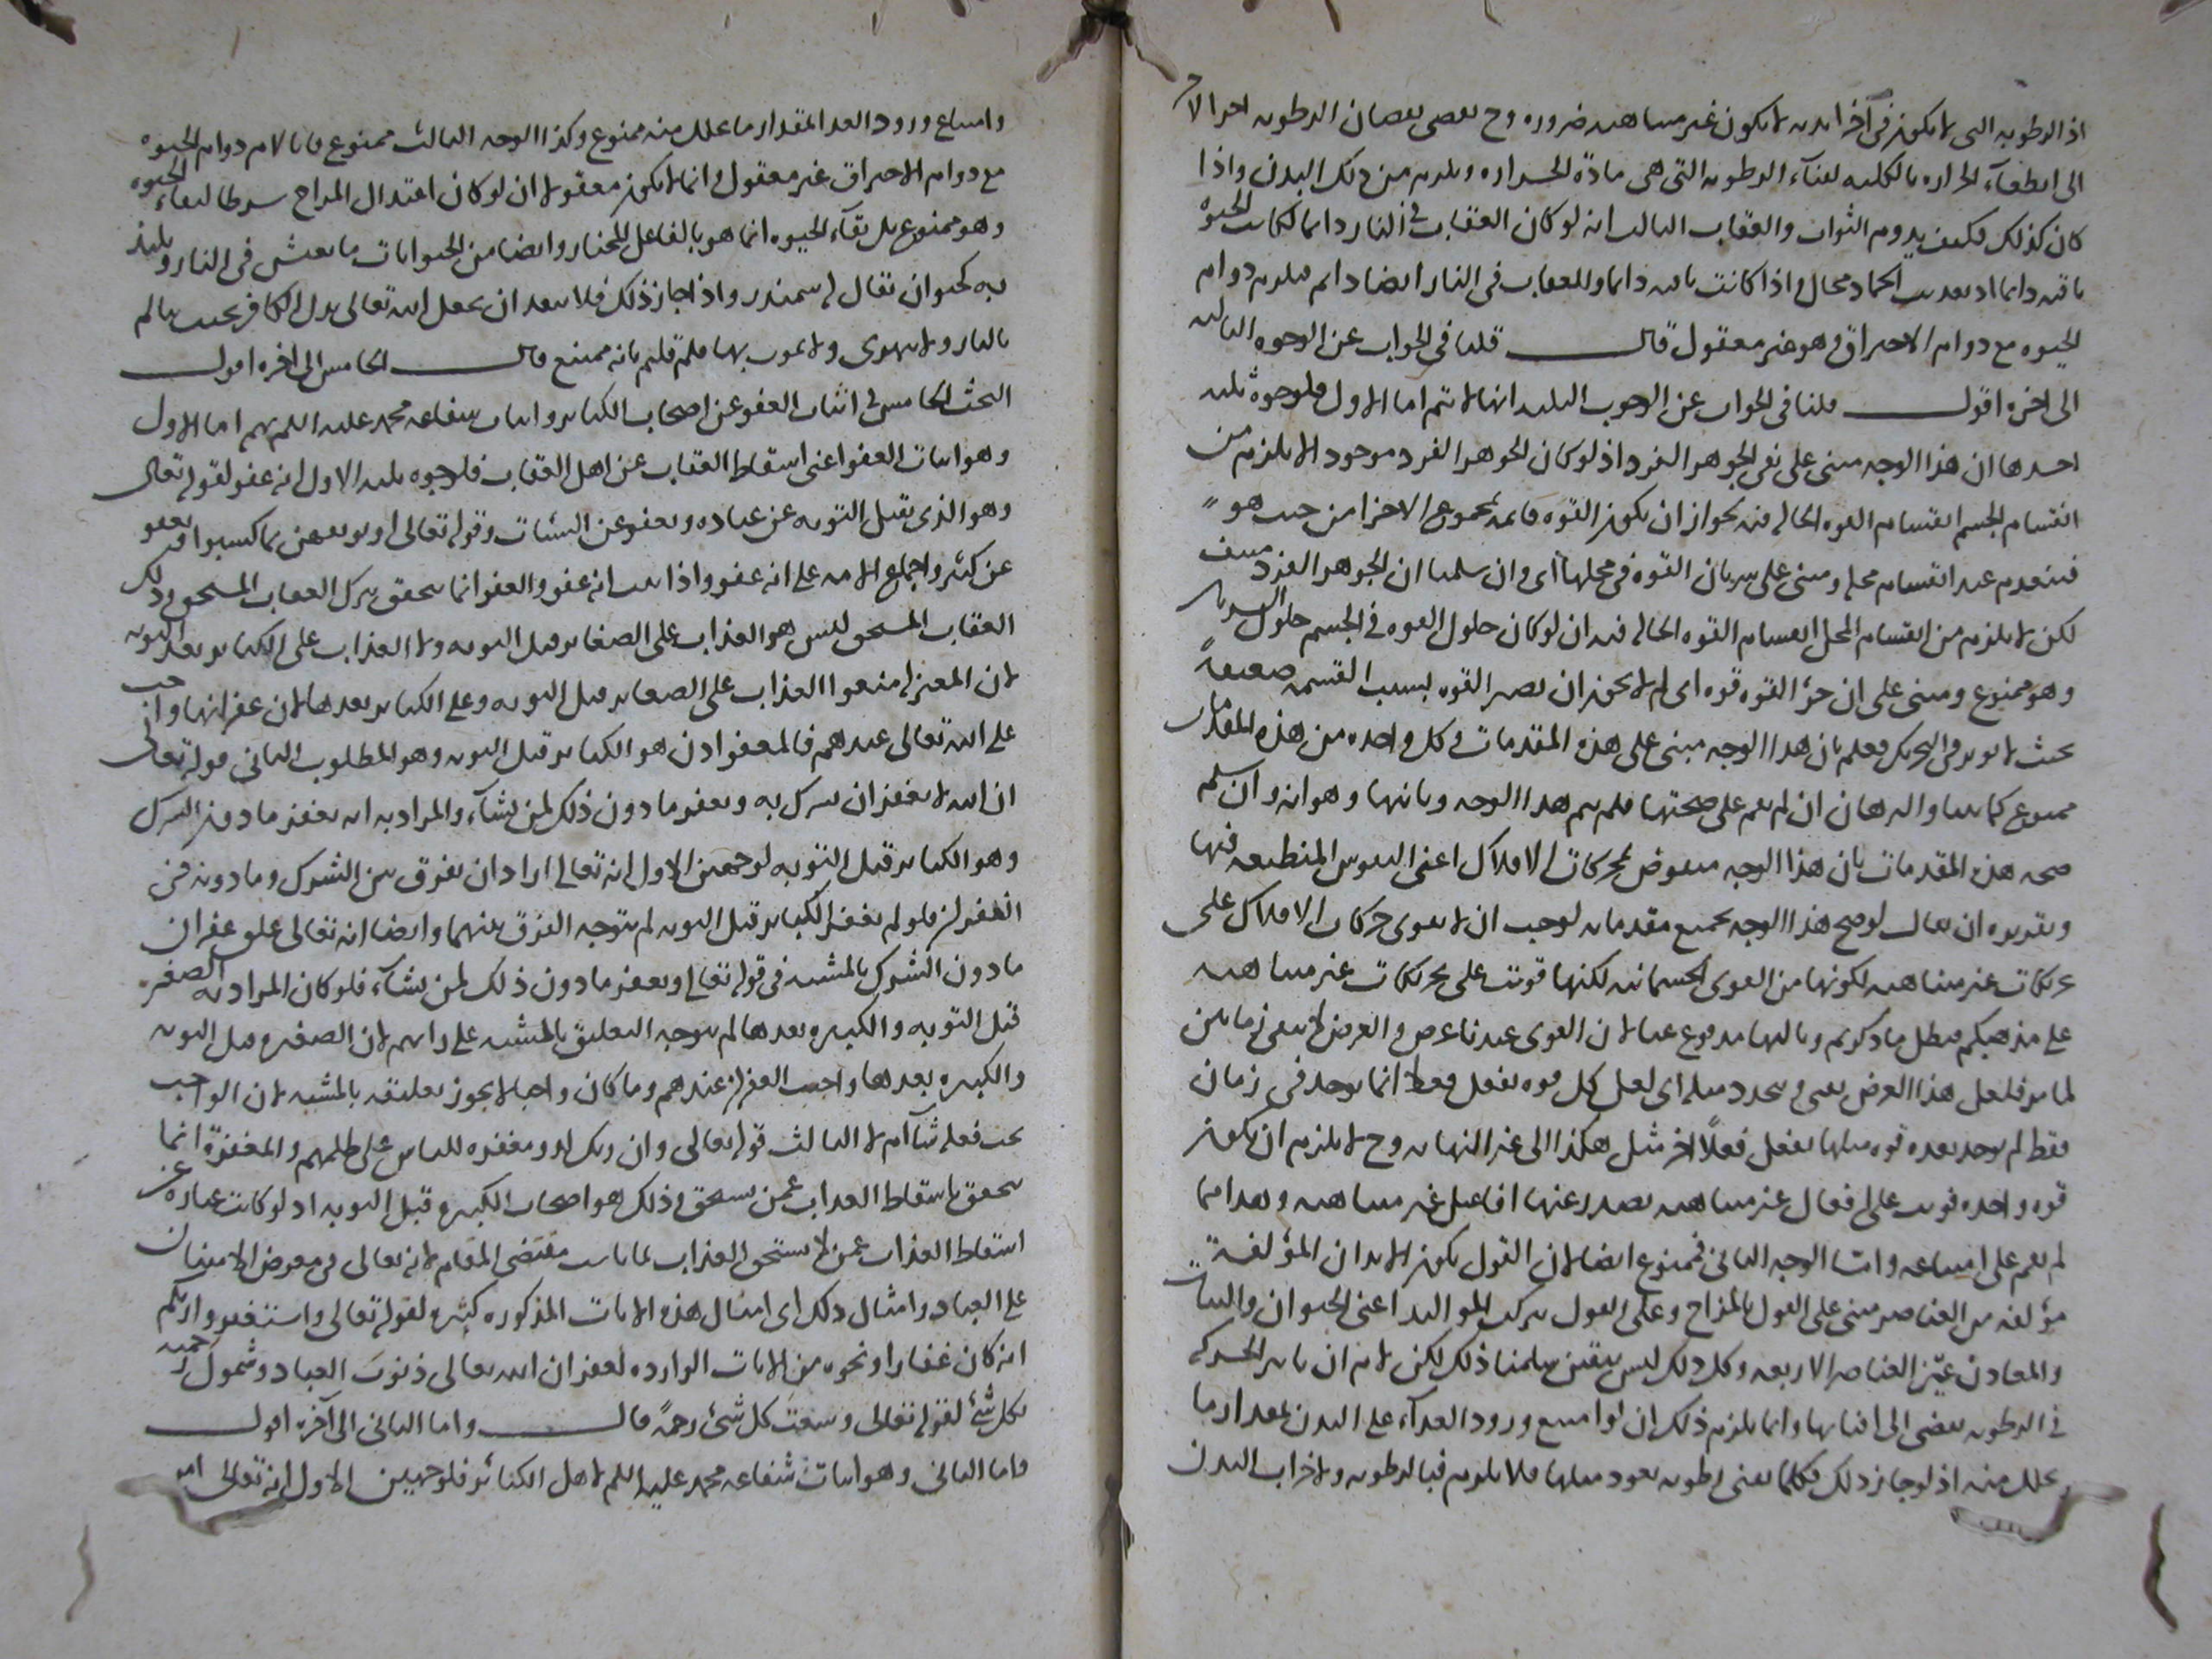 اذ الرطوبه التى لا يكون فى آخر البدن لا يكون غير متناهيه ضروره وح يفضى نقصان الرطوبه اخر الامر
الى انطفآء الحراره بالكليه لفنآء الرطوبه التى هى مادة الحراره ويلزم من ذلك البدن واذا
كان كذلك فكيف يدوم الثواب والعقاب الثالث انه لو كان العقاب فى النار دايما لكانت الحيوه
باقيه دايما اذ تعذيب الجماد محال واذا كانت باقيه دايما وللعقاب فى النار ايضا دايم فيلزم دوام
الحيوه مع دوام الاحتراق وهو غير معقول قال قلنا فى الجواب عن الوجوه الثالثه
الى اخره اقول قلنا فى الجواب عن الوجوه الثلثه انها لا تتم اما الاول فلوجوه ثلثه
احدها ان هذا الوجه مبنى على نفى الجوهر الفرد اذ لو كان الجوهر الفرد موجودا لا يلزم من
انقسام الجسم انقسام القوه الحاله فيه لجواز ان يكون القوه قايمه بمجموع الاجزا من حيث هو
فينعدم عند انقسام محله ومبنى على سريان القوه فى محلها اى وان سلمنا ان الجوهر الفرد منتف
لكن لا يلزم من انقسام المحل انقسام القوه الحاله فيه ان لو كان حلول القوه فى الجسم حلول السريان
وهو ممنوع ومبنى على ان جزؤ القوه قوه اى لم لا يجوز ان تصير القوه بسبب القسمه ضعيفة
بحيث لا يوثر فى التحريك فعلم بان هذا الوجه مبنى على هذه المقدمات وكل واحده من هذه المقدمات
ممنوع كما بينا والبرهان ان لم يقم على صحتها فلم يتم هذا الوجه وثانيها وهو انه وان سلم
صحه هذه المقدمات بان هذا الوجه منقوض بمحركات الافلاك اعنى النفوس المنطبعه فيها
وتقريره ان يقال لو صح هذا الوجه بجميع مقدماته لوجب ان لا يقوى حركات الافلاك على
تحريكات غير متناهيه لكونها من القوى الجسمانيه لكنها قويت على تحريكات غير متناهيه
على مذهبكم فبطل ما ذكرتم وثالثها مدفوع عنا لان القوى عندنا عرض والعرض لا يبقى زمانين
لما مر فلعل هذا العرض يفنى ويتجدد مثله اى لعل كل قوه تفعل فعلا انما يوجد فى زمان
فقط ثم يوجد بعده قوه مثلها تفعل فعلا اخر مثل هكذا الى غير النهايه وح لا يلزم ان يكون
قوه واحده قويت على افعال غير متناهيه يصدر عنها افاعيل غير متناهيه وهذا مما
لم يقم على امتناعه وامتا الوجه الثانى فممنوع ايضا لان القول بكون الابدان المؤلفة
مؤلفه من العناصر مبنى على القول بالمزاج وعلى القول بتركب المواليد اعنى الحيوان والنبات
والمعادن عن العناصر الاربعه وكل ذلك ليس بيقين سلمنا ذلك لكن لا نم ان تاثير الحركه
فى الرطوبه يفضى الى افنائها وانما يلزم ذلك ان لو امتنع ورود الغذآء على البدن بمقدار ما
تحلل منه اذ لو جاز ذلك فكلما يفنى رطوبه يعود مثلها فلا يلزم فنا الرطوبه ولا خراب البدن
وامتناع ورود الغدا لمقدار ما تحلل منه ممنوع وكذا الوجه الثالث ممنوع فانا لا نم دوام الحيوه
مع دوام الاحتراق غير معقول وانما لا يكون معقولا ان لو كان اعتدال المزاج شرطا لبقاء الحيوه
وهو ممنوع بل بقآء الحيوه انما هو بالفاعل المختار وايضا من الحيوانات ما يعيش فى النار ويلتذ
به كحيوان يقال له سمندر واذا جاز ذلك فلا يبعد ان يجعل الله تعالى بدن الكافر بحيث يتالم
بالنار ولا يتهرى ولا يموت بها فلم قلتم بانه ممتنع قال الخامس الى اخره اقول
البحث الخامس فى اثبات العفو عن اصحاب الكبائر واثبات شفاعه محمد عليه السلم لهم اما الاول
وهو اثبات العفو اعنى اسقاط العقاب عن اهل العقاب فلوجوه ثلثه الاول انه عفو لقوله تعالى
وهو الذى يقبل التوبه عن عباده ويعفو عن السيئات وقوله تعالى او يوبقهن بما كسبوا ويعفو
عن كثير واجماع الامه على انه عفو واذا ثبت انه عفو والعفو انما يتحقق بترك العقاب المستحق وذلك
العقاب المستحق ليس هو العذاب على الصغائر قبل التوبه ولا العذاب على الكبائر بعد التوبه
لان المعتزله منعوا العذاب على الصغاير قبل التوبه وعلى الكبائر بعدها لان غفرانها واجب
على الله تعالى عندهم فالمعفو اذن هو الكبائر قبل التوبه وهو المطلوب الثانى قوله تعالى
ان الله لا يغفر ان يشرك به ويغفر ما دون ذلك لمن يشآء والمراد به انه يغفر ما دون الشرك
وهو الكبائر قبل التوبه لوجهين الاول انه تعالى اراد ان يفرق بين الشرك وما دونه فى
الغفران فلو لم يغفر الكبائر قبل التوبه لم يتوجه الفرق بينهما وايضا انه تعالى علق غفران
ما دون الشرك بالمشيه فى قوله تعالى ويغفر ما دون ذلك لمن يشآء فلو كان المراد به الصغيره
قبل التوبه والكبيره بعدها لم يتوجه التعليق بالمشيه على رايهم لان الصغيره قبل التوبه
والكبيره بعدها واجب الغفران عندهم وما كان واجبا لا يجوز تعليقه بالمشيه لان الواجب
يجب فعله شآء ام لا الثالث قوله تعالى وان ربك لذو مغفره للناس على ظلمهم والمغفرة انما
يتحقق باسقاط العذاب عمن يستحق وذلك هو اصحاب الكبيره قبل التوبه اذ لو كانت عباره عن
اسقاط العذاب عمن لا يستحق العذاب لما ناسب مقتضى المقام لانه تعالى فى معرض الامتنان
على العباد وامثال ذلك اى امثال هذه الايات المذكوره كثيره لقوله تعالى واستغفروا ربكم
انه كان غفارا ونحوه من الايات الوارده لغفران الله تعالى ذنوب العباد وشمول رحمته
لكل شئ لقوله تعالى وسعت كل شئ رحمة قال واما الثانى الى آخره اقول
واما الثانى وهو اثبات شفاعه محمد عليه السلم لاهل الكبائر فلوجهين الاول انه تعالى امر